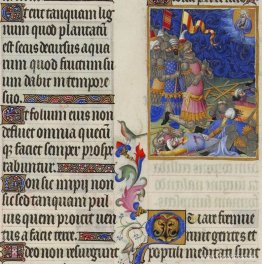 Et erit tanquam lig
num quod plantatū
est secus decursus aqua
rum quod fructum su
um dabit in tempore
suo.
Et folium eius non
defluet omnia quecū
faciet semper prospe
rabuntur.
Non sic impii non
sic sed tanquam pul
uis quem proicit uen
tus a facie terre.
Ideo non resurgunt
Quare fremue
runt gentes et
populi meditati sunt